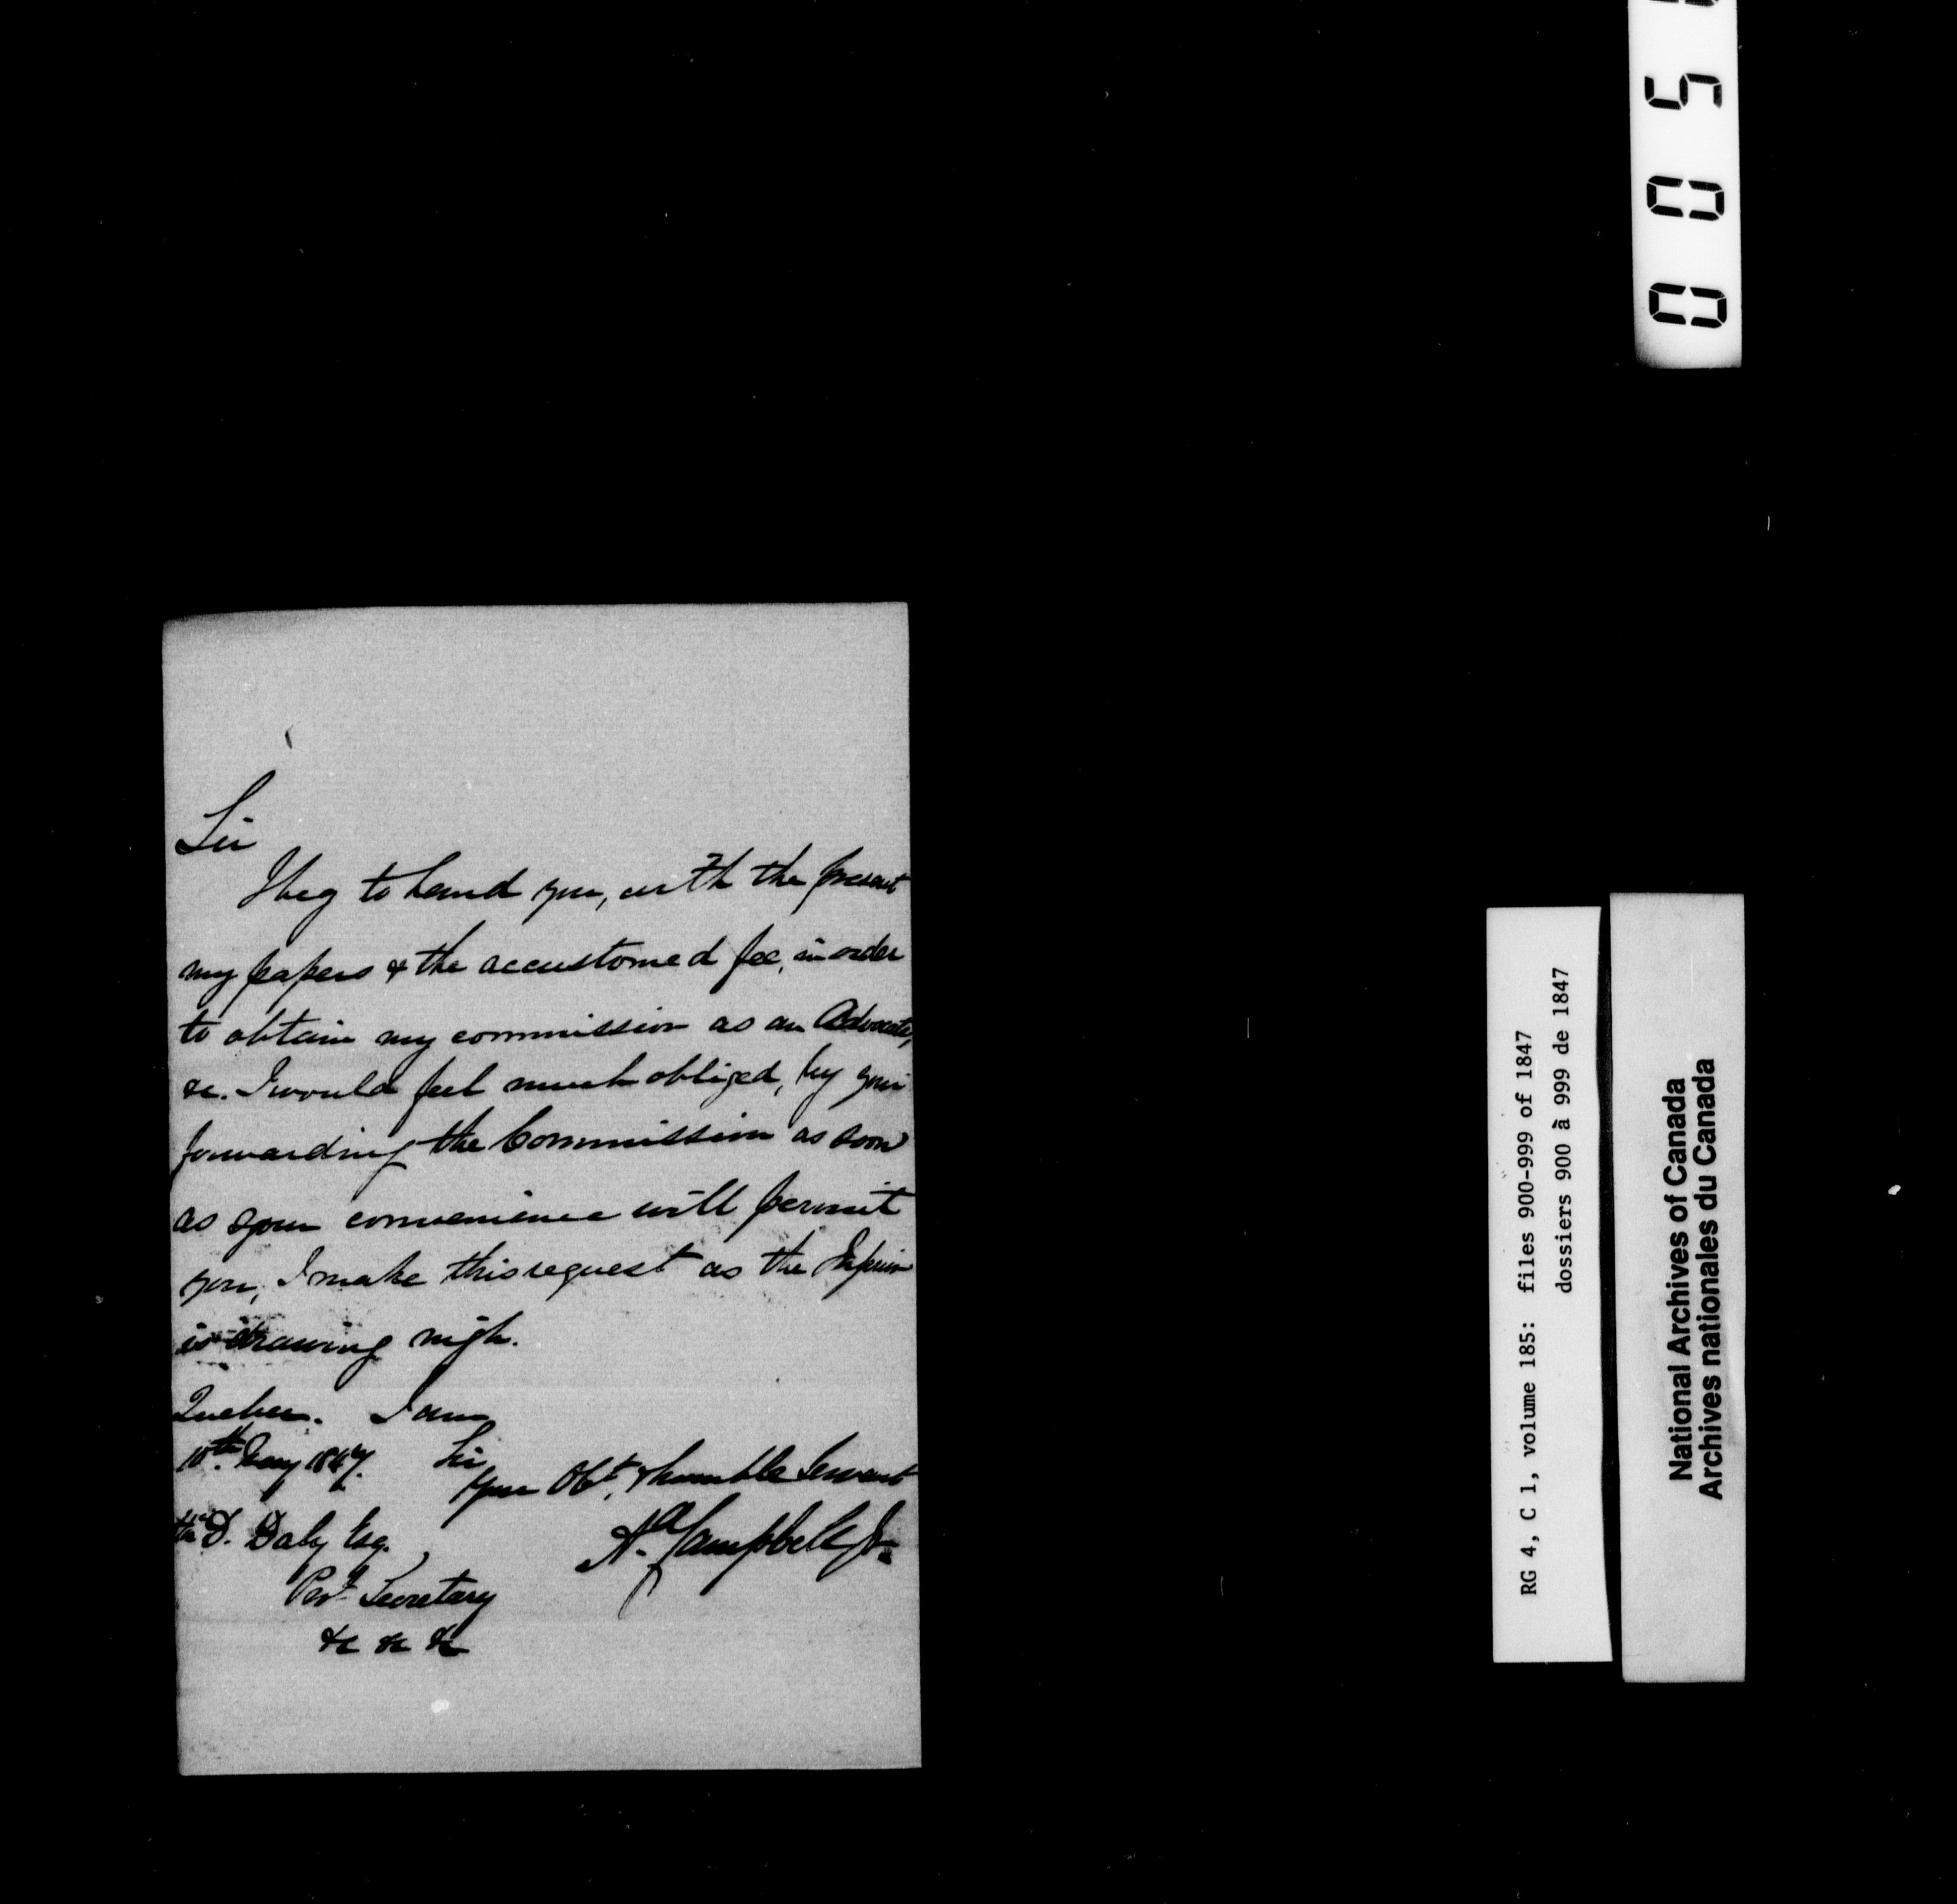 Sir
I beg to hand you, with the present
my papers & the accustomed fee, in order
to obtain my commission as an Advocate,
&c. I would feel much obliged, by your
forwarding the Commission as soon
as your convenience will permit
you, I make this request as the
is drawing nigh.
Quebec. I am
10th May 1847. Sir
Your Obt. & humble Servant
D. Daly Esq. A. Campbell Jr.
Prov. Secretary
&c &c &c
0 0 5
RG 4, C 1, volume 185: files 900-999 of 1847
dossiers 900 à 999 de 1847
National Archives of Canada
Archives nationales du Canada